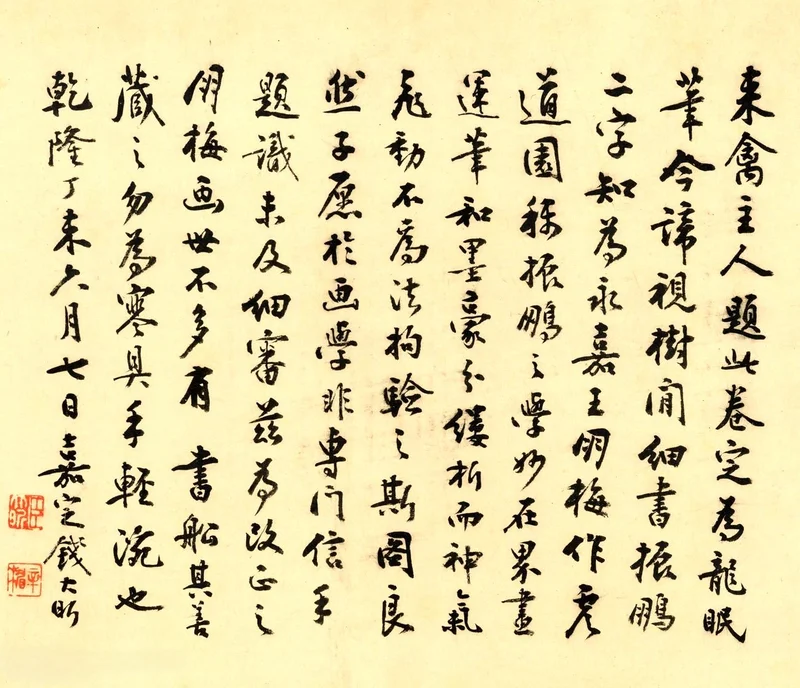 來禽主人題此卷定為龍眠
筆今諦視樹間細書振鵬
二字知為永嘉王朋梅作虞
道園稱振鵬之學妙在界畫
運筆和墨豪分縷析而神氣
飛動不為法拘驗之斯圖良
然子愿於画學非專門信手
題識未及細審茲為改正之
朋梅画世不多有書船其善
藏之勿為寒具手輕涴也
乾隆丁未六月七日嘉定錢大昕
辛楣